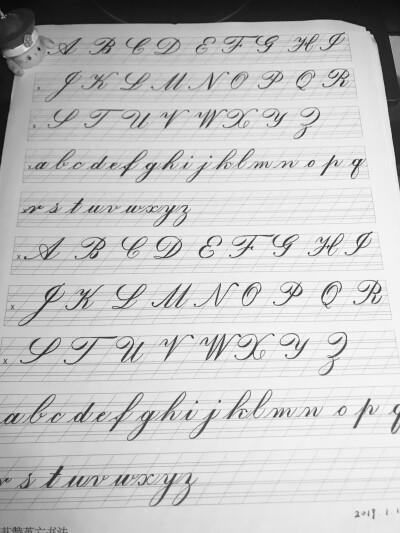 A B C D E F G H I
J K L M N O P Q R
S T U V W X Y Z
a b c d e f g h i j k l m n o p q
r s t u v w x y z
x A B C D E F G H I
x J K L M N O P Q R
x S T U V W X Y Z
a b c d e f g h i j k l m n o p q
r s t u v w x y z
2019. 1